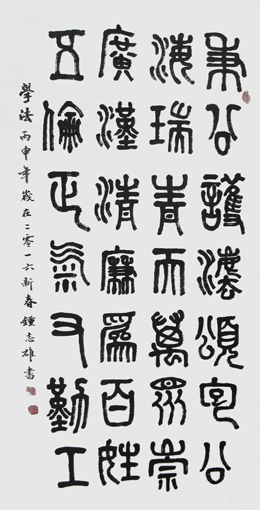 秉公護灋頌包公
海瑞青天萬眾崇
廣漢清廉爲百姓
五倫正氣又勤工
學法 丙申年歲在二零一六新春 鍾志雄書